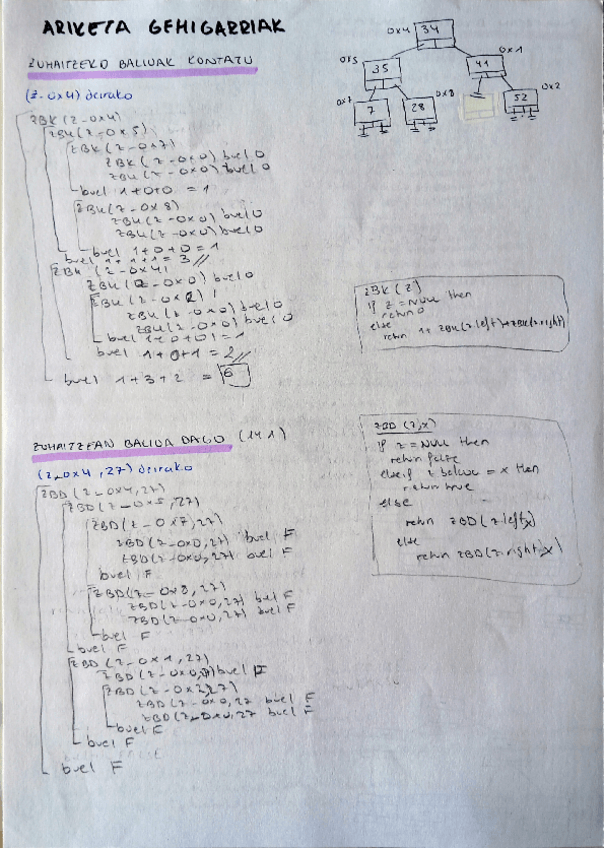 ARIKETA GEHIGARRIAK
ZUHAITZEKO BALIOAK KONTATU
(z-0x4) deirako
ZBK(z-0x4)
ZBK(z-0x5)
ZBK(z-0x7)
ZBK(z-0x0) buel 0
ZBK(z-0x0) buel 0
buel 1+0+0 = 1
ZBK(z-0x8)
ZBK(z-0x0) buel 0
ZBK(z-0x0) buel 0
buel 1+0+0=1
buel 1+1+1=3
ZBK (z-0x4)
ZBK(z-0x0) buel 0
ZBK(z-0x2)
ZBK(z-0x0) buel 0
ZBK(z-0x0) buel 0
buel 1+0+0 = 1
buel 1+0+1=2
buel 1+3+2 = 6
0x4 34
0x5 35
41 0x1
0x7 7
28 0x8
52 0x2
ZBK(z)
if z=NULL then
return 0
else
retrn 1+ZBK(z.left)+ZBK(z.right)
ZUHAITZEAN BALIOA DAGO (141)
(z-0x4, 27) deirako
ZBD(z-0x4,27)
ZBD(z-0x5,27)
ZBD(z-0x7,27)
ZBD(z-0x0,27) buel F
ZBD(z-0x0,27) buel F
buel F
ZBD(z-0x8,27)
ZBD(z-0x0,27) buel F
ZBD(z-0x0,27) buel F
buel F
buel F
ZBD(z-0x1,27)
ZBD(z-0x0,27) buel F
ZBD(z-0x2,27)
ZBD(z-0x0,27 buel F
ZBD(z-0x0,27 buel F
buel F
buel F
buel F
ZBD (z,x)
if z=NULL then
retrn false
else if z balioa = x then
retrn true
else
retrn ZBD(z.left,x)
else
retrn ZBD(z.right,x)